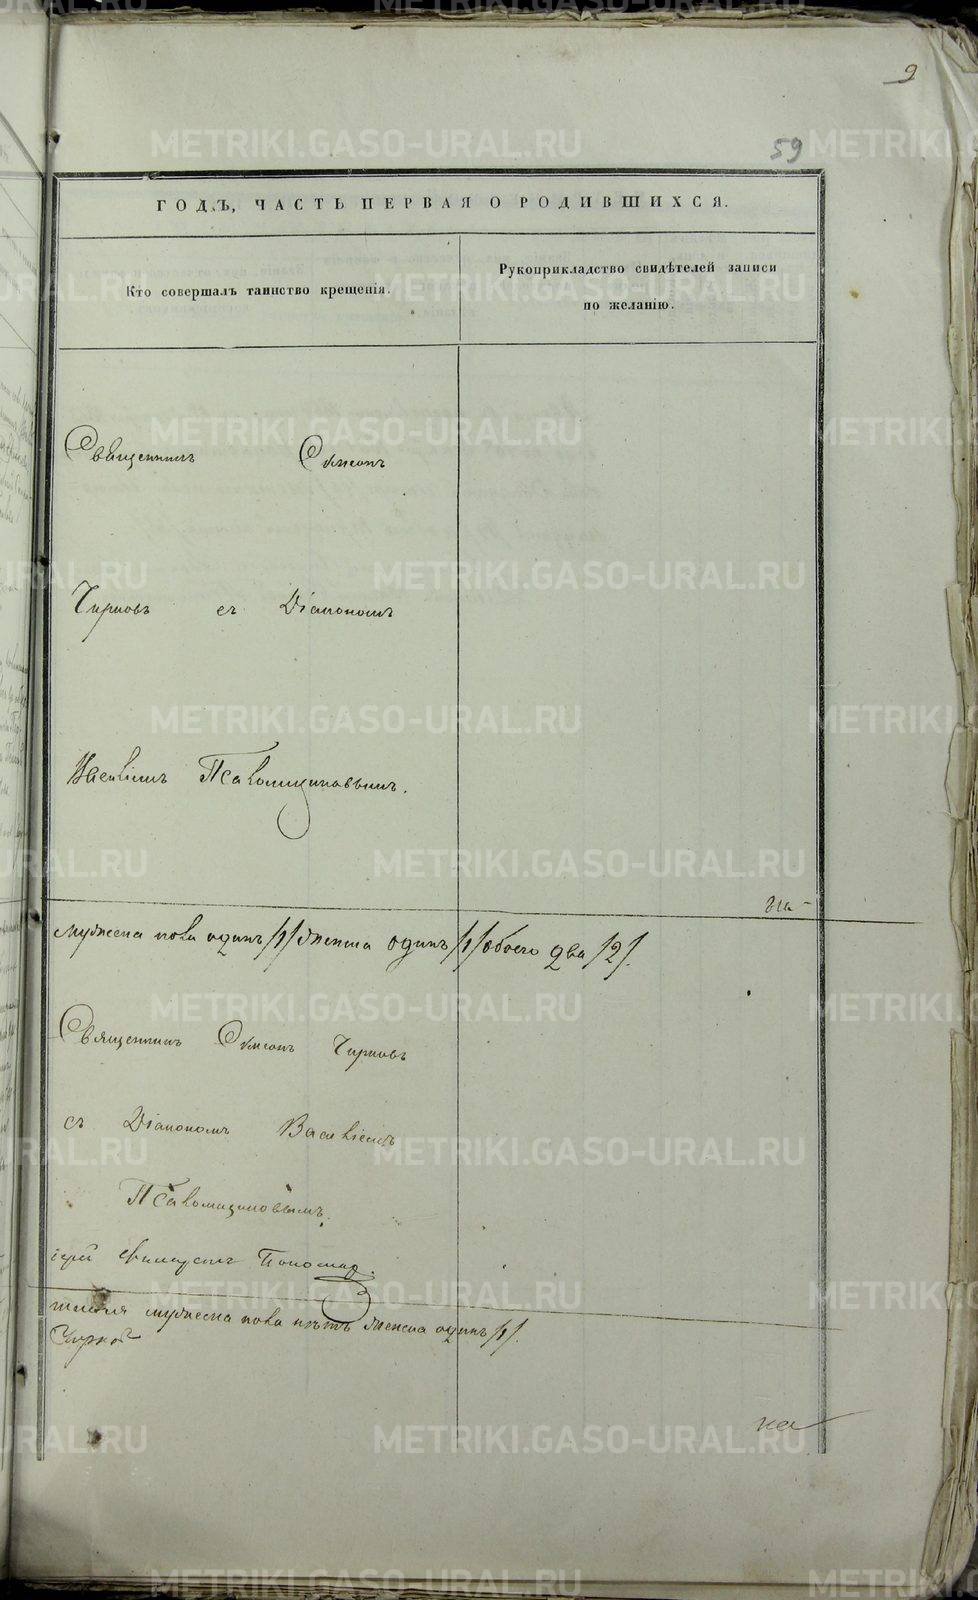 9
59
ГОДЪ, ЧАСТЬ ПЕРВАЯ О РОДИВШИХСЯ.
Кто совершалъ таинство крещенія.
Рукоприкладство свидѣтелей записи
по желанію.
Священникъ Симеонъ
Чирковъ съ Діакономъ
Василіемъ Псаломщиковымъ.
мужеска пола одинъ /1/ женска одинъ /1/ обоего два /2/.
Священникъ Симеонъ Чирковъ
съ Діакономъ Василіемъ
Псаломщиковымъ.
мужеска пола нѣтъ женска одинъ /1/.
METRIKI.GASO-URAL.RU